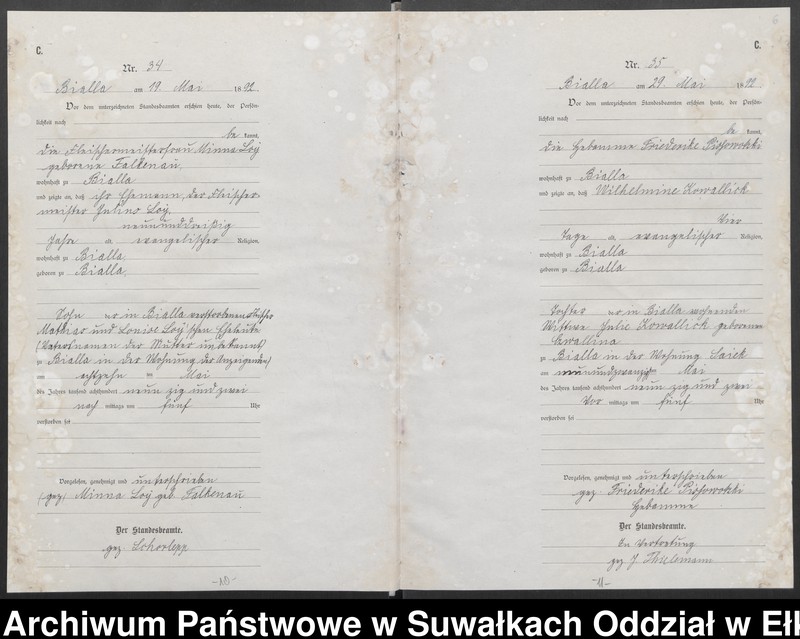 6
C.
Nr. 34
Bialla am 19. Mai 1892
Vor dem unterzeichneten Standesbeamten erschien heute, der Persön-
lichkeit nach
be kannt,
die Fleischermeisterfrau Minna Loÿ
geborene Falkenau,
wohnhaft zu Bialla
und zeigte an, daß ihr Ehemann, der Fleischer
meister Julius Loÿ,
neununddreißig
Jahre a, evangelischer Religion,
wohnhaft zu Bialla,
geboren zu Bialla,
Sohn der in Bialla verstorbenen
Mathias und Louise Loÿ'schen Eheleute
(Vatersnamen der Mutter unbekannt)
zu Bialla in der Wohnung der Anzeigenden
am achtzehn ten Mai
des Jahres tausend achthundert neun zig und zwei
nach mittags um fünf Uhr
verstorben sei
Vorgelesen, genehmigt und unterschrieben
(gez) Minna Loÿ geb. Falkenau
Der Standesbeamte.
gez Schorlepp
-10-
C.
Nr. 35
Bialla am 29. Mai 1892.
Vor dem unterzeichneten Standesbeamten erschien heute, der Persön-
lichkeit nach
be kannt,
die Hebamme Friederike
wohnhaft zu Bialla
und zeigte an, daß Wilhelmine Kowallick
vier
Tage a, evangelischer Religion,
wohnhaft zu Bialla
geboren zu Bialla
Tochter der in Bialla wohnenden
Wittwe Julie Kowallick geborenen
zu Bialla in der Wohnung
am neunundzwanzig Mai
des Jahres tausend achthundert neun zig und zwei
Vor mittags um fünf Uhr
verstorben sei
Vorgelesen, genehmigt und unterschrieben
gez Friederike
Hebamme
Der Standesbeamte.
In Vertretung
gez J Thielemann
-11-
Archiwum Państwowe w Suwałkach Oddział w Eł